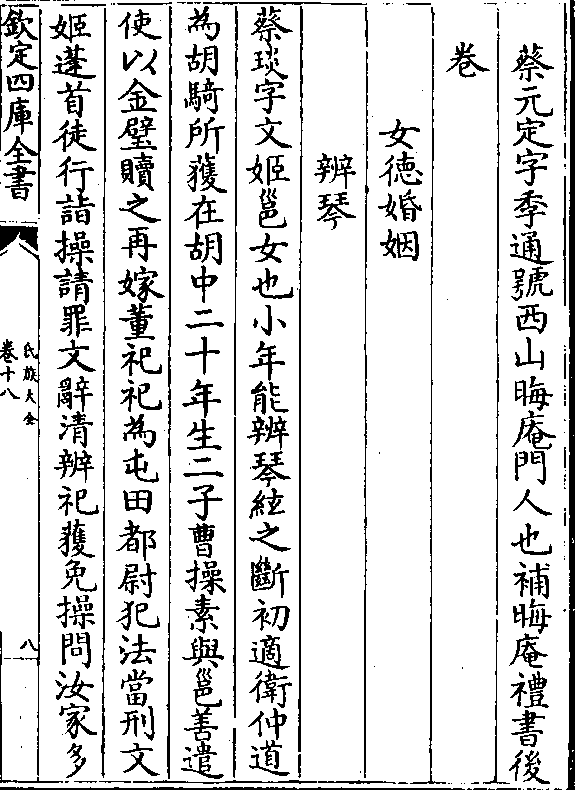 蔡元定字季通號西山晦庵門人也補晦庵禮書後
卷
女德婚姻
辨琴
蔡琰字文姬邕女也小年能辨琴絃之斷初適衛仲道
為胡騎所獲在胡中二十年生二子曹操素與邕善遣
使以金璧贖之再嫁董祀祀為屯田都尉犯法當刑文
姬蓬首徒行詣操請罪文辭清辨祀獲免操問汝家多
欽定四庫全書
氏族大全
卷十八
八